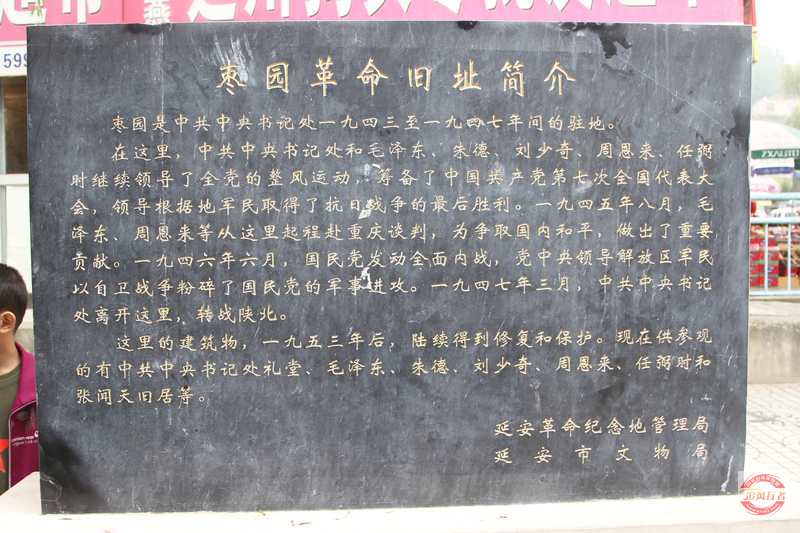 599
枣园革命旧址简介
枣园是中共中央书记处一九四三至一九四七年间的驻地。
在这里，中共中央书记处和毛泽东、朱德、刘少奇、周恩来、任弼
时继续领导了全党的整风运动，筹备了中国共产党第七次全国代表大
会，领导根据地军民取得了抗日战争的最后胜利。一九四五年八月，毛
泽东、周恩来等从这里起程赴重庆谈判，为争取国内和平，做出了重要
贡献。一九四六年六月，国民党发动全面内战，党中央领导解放区军民
以自卫战争粉碎了国民党的军事进攻。一九四七年三月，中共中央书记
处离开这里，转战陕北。
这里的建筑物，一九五三年后，陆续得到修复和保护。现在供参观
的有中共中央书记处礼堂、毛泽东、朱德、刘少奇、周恩来、任弼时和
张闻天旧居等。
延安革命纪念地管理局
延安市文物局